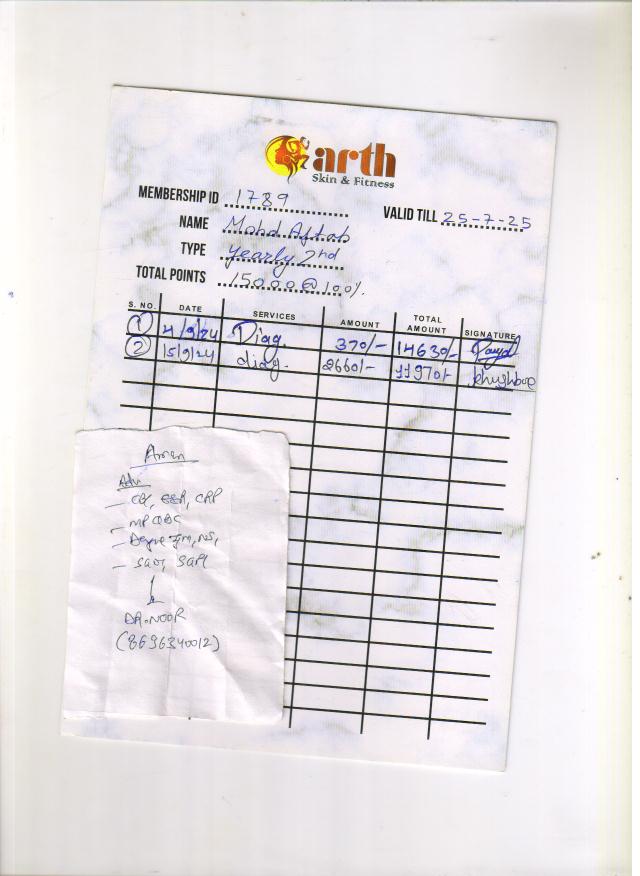 arth
Skin & Fitness
MEMBERSHIP ID 1789
VALID TILL 25-7-25
NAME Mohd Aftab
TYPE Yearly 2nd
TOTAL POINTS 15000@100%.
S. NO. DATE SERVICES AMOUNT TOTAL AMOUNT SIGNATURE
1 4/9/24 Diag. 370/- 14630/-
2 15/9/24 diag. 2660/- 11970/- khushboo
Aman
Adv
CRP
MP QBC
Dengue IgM, NS,
SGOT, SGPT
DR. NOOR
(8696340012)